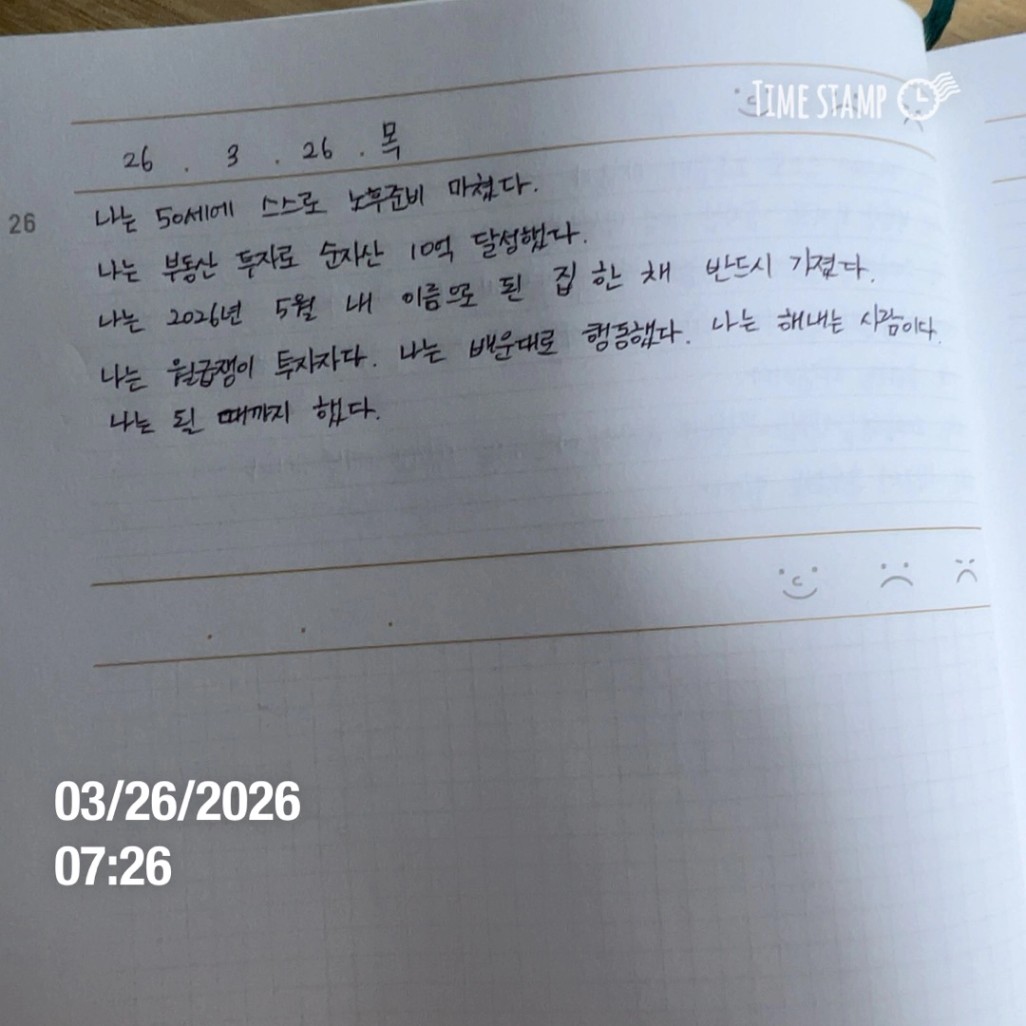 TIME STAMP
26 . 3 . 26 . 목
26
나는 50세에 스스로 노후준비 마쳤다.
나는 부동산 투자로 순자산 10억 달성했다.
나는 2026년 5월 내 이름으로 된 집 한 채 반드시 가졌다.
나는 월급쟁이 투자자다. 나는 배운대로 행동했다. 나는 해내는 사람이다.
나는 될 때까지 했다.
03/26/2026
07:26